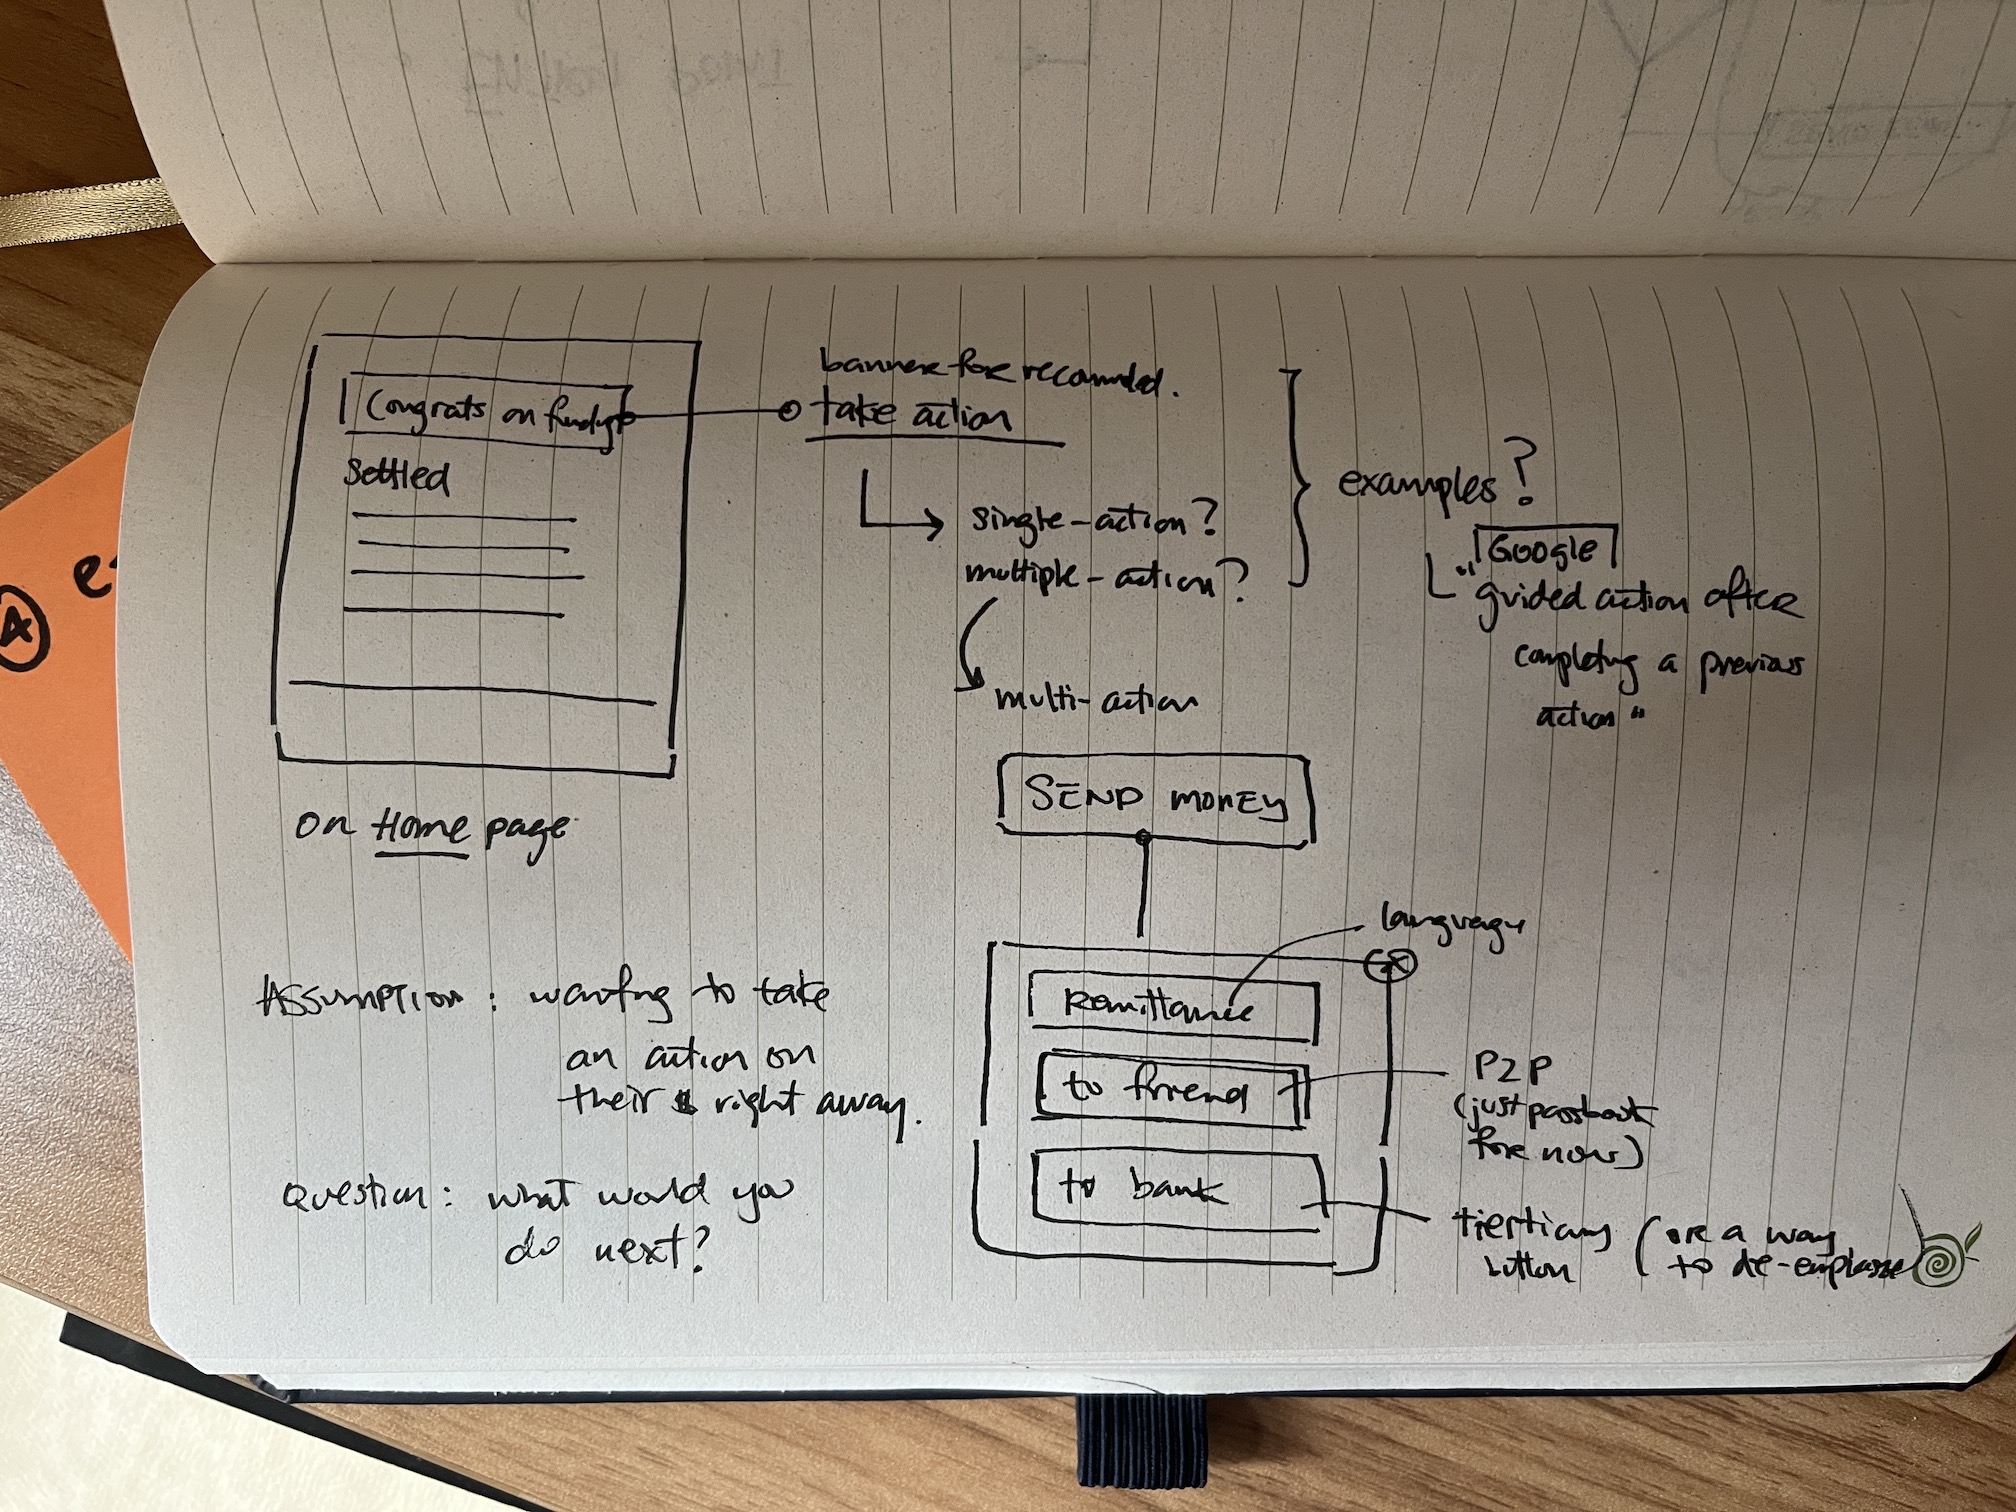 Congrats on
Settled
on Home page
banner for
take action
single-action?
multiple-action?
multi-action
examples?
Google
"guided action after
completing a previous
action"
SEND MONEY
language
Remittance
to friend
P2P
(just passbook
for now)
to bank
tiertiary
button
(or a way
to de-emphasize
Assumption: wanting to take
an action on
their $ right away.
Question: what would you
do next?